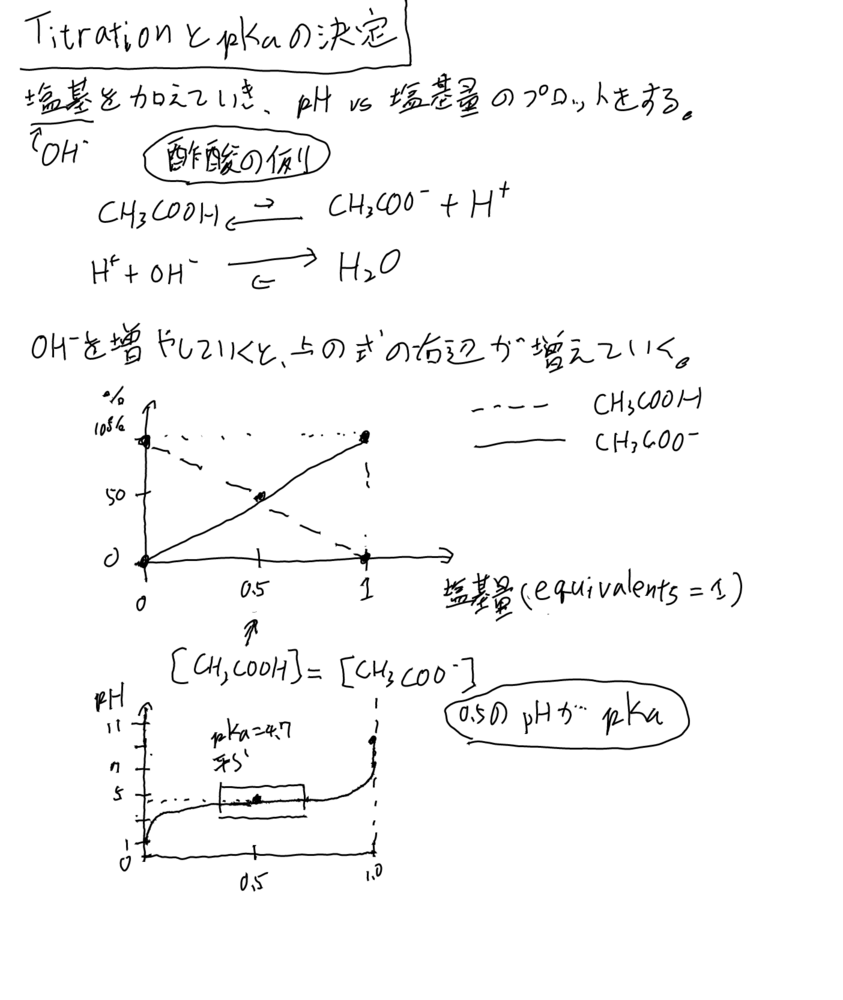 Titrationとpkaの決定
塩基を加えていき、pH vs 塩基量のプロットをする。
OH⁻
酢酸の例
CH₃COOH ⇄ CH₃COO⁻ + H⁺
H⁺ + OH⁻ ⇄ H₂O
OH⁻を増やしていくと、上の式の右辺が増えていく。
%
100%
50
0
0 0.5 1
塩基量(equivalents = 1)
CH₃COOH
CH₃COO⁻
[CH₃COOH] = [CH₃COO⁻]
0.5の pHが pKa
pH
11
7
5
1
0
pKa=4.7
平ら
0.5 1.0